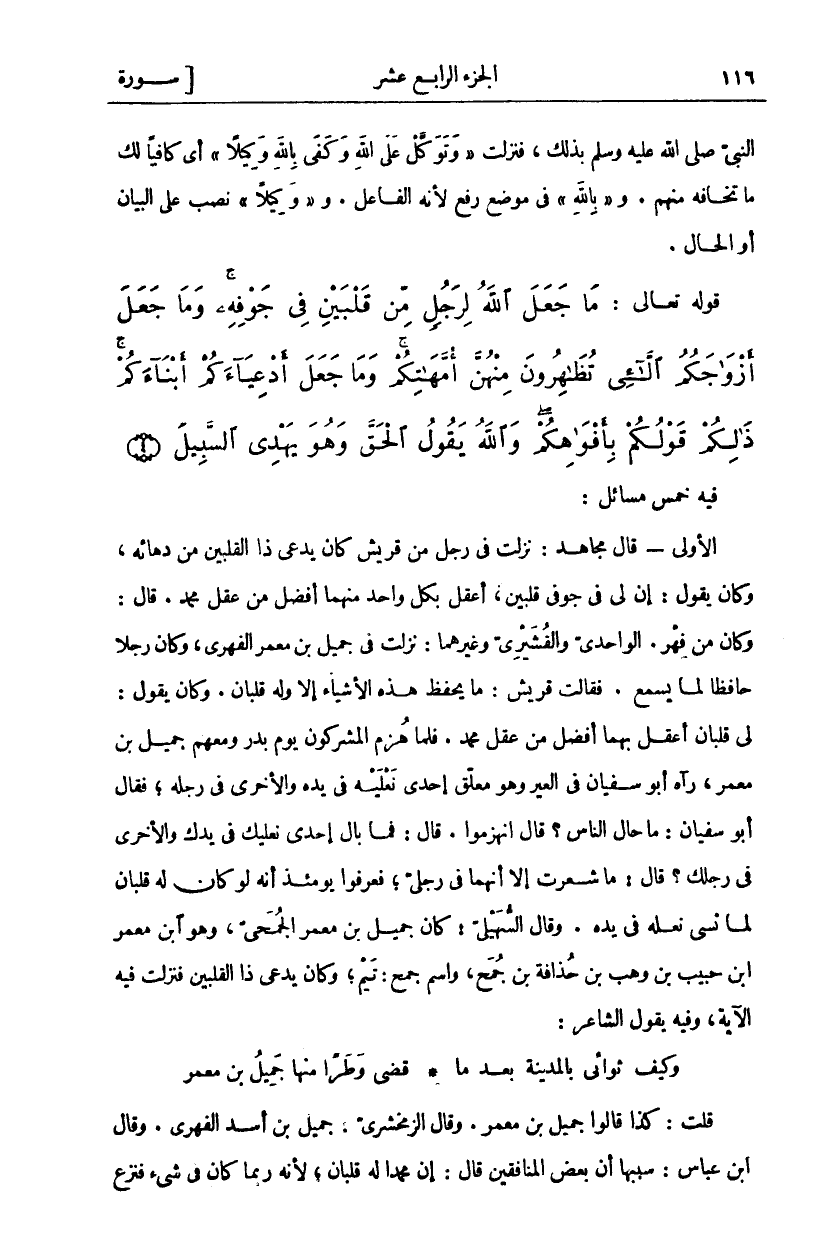 ١١٦ الجزء الرابع عشر [ سـورة
النبىّ صلى الله عليه وسلم بذلك ، فنزلت « وَتَوَكَّلْ عَلَى اللهِ وَكَفَى بِاللهِ وَكِيلًا » أى كافيًا لك
ما تخـافه منهم . و « بِاللهِ » فى موضع رفع لأنه الفـاعل . و « وَكِيلًا » نصب على البيان
أو الحـال .
قوله تعـالى : مَّا جَعَلَ ٱللَّهُ لِرَجُلٍ مِّن قَلْبَيْنِ فِى جَوْفِهِۦۚ وَمَا جَعَلَ
أَزْوَٰجَكُمُ ٱلَّـٰٓـِٔى تُظَـٰهِرُونَ مِنْهُنَّ أُمَّهَـٰتِكُمْۚ وَمَا جَعَلَ أَدْعِيَآءَكُمْ أَبْنَآءَكُمْۚ
ذَٰلِكُمْ قَوْلُكُم بِأَفْوَٰهِكُمْۖ وَٱللَّهُ يَقُولُ ٱلْحَقَّ وَهُوَ يَهْدِى ٱلسَّبِيلَ ﴿٤﴾
فيه خمس مسائل :
الأولى — قال مجاهـد : نزلت فى رجل من قريش كان يدعى ذا القلبين من دهائه ،
وكان يقول : إن لى فى جوفى قلبين ، أعقل بكل واحد منهما أفضل من عقل محمد . قال :
وكان من فِهْر . الواحدىّ والقُشَيْرِىّ وغيرهما : نزلت فى جميل بن معمر الفهرى ، وكان رجلا
حافظا لمـا يسمع . فقالت قريش : ما يحفظ هـذه الأشياء إلا وله قلبان . وكان يقول :
لى قلبان أعقـل بهما أفضل من عقل محمد . فلما هُزم المشركون يوم بدر ومعهم جميـل بن
معمر ، رآه أبو سـفيان فى العير وهو معلّق إحدى نَعْلَيْـه فى يده والأخرى فى رجله ؛ فقال
أبو سفيان : ما حال الناس ؟ قال انهزموا . قال : فمـا بال إحدى نعليك فى يدك والأخرى
فى رجلك ؟ قال : ما شـعرت إلا أنهما فى رجلىّ ؛ فعرفوا يومئـذ أنه لو كان له قلبان
لمـا نسى نعـله فى يده . وقال السُّهَيْلِىّ : كان جميـل بن معمر الجُمَحىّ ، وهو ٱبن معمر
ابن حبيب بن وهب بن حُذافة بن جُمَح ، واسم جمع : تَيْمٌ ؛ وكان يدعى ذا القلبين فنزلت فيه
الآية ، وفيه يقول الشاعر :
وكيف ثوائى بالمدينة بعـد ما * قضى وَطَرًا منها جَمِيلُ بن معمر
قلت : كذا قالوا جميل بن معمر . وقال الزمخشرىّ : جميل بن أسـد الفهرى . وقال
ابن عباس : سببها أن بعض المنافقين قال : إن محمدا له قلبان ؛ لأنه ربما كان فى شىء فنزع